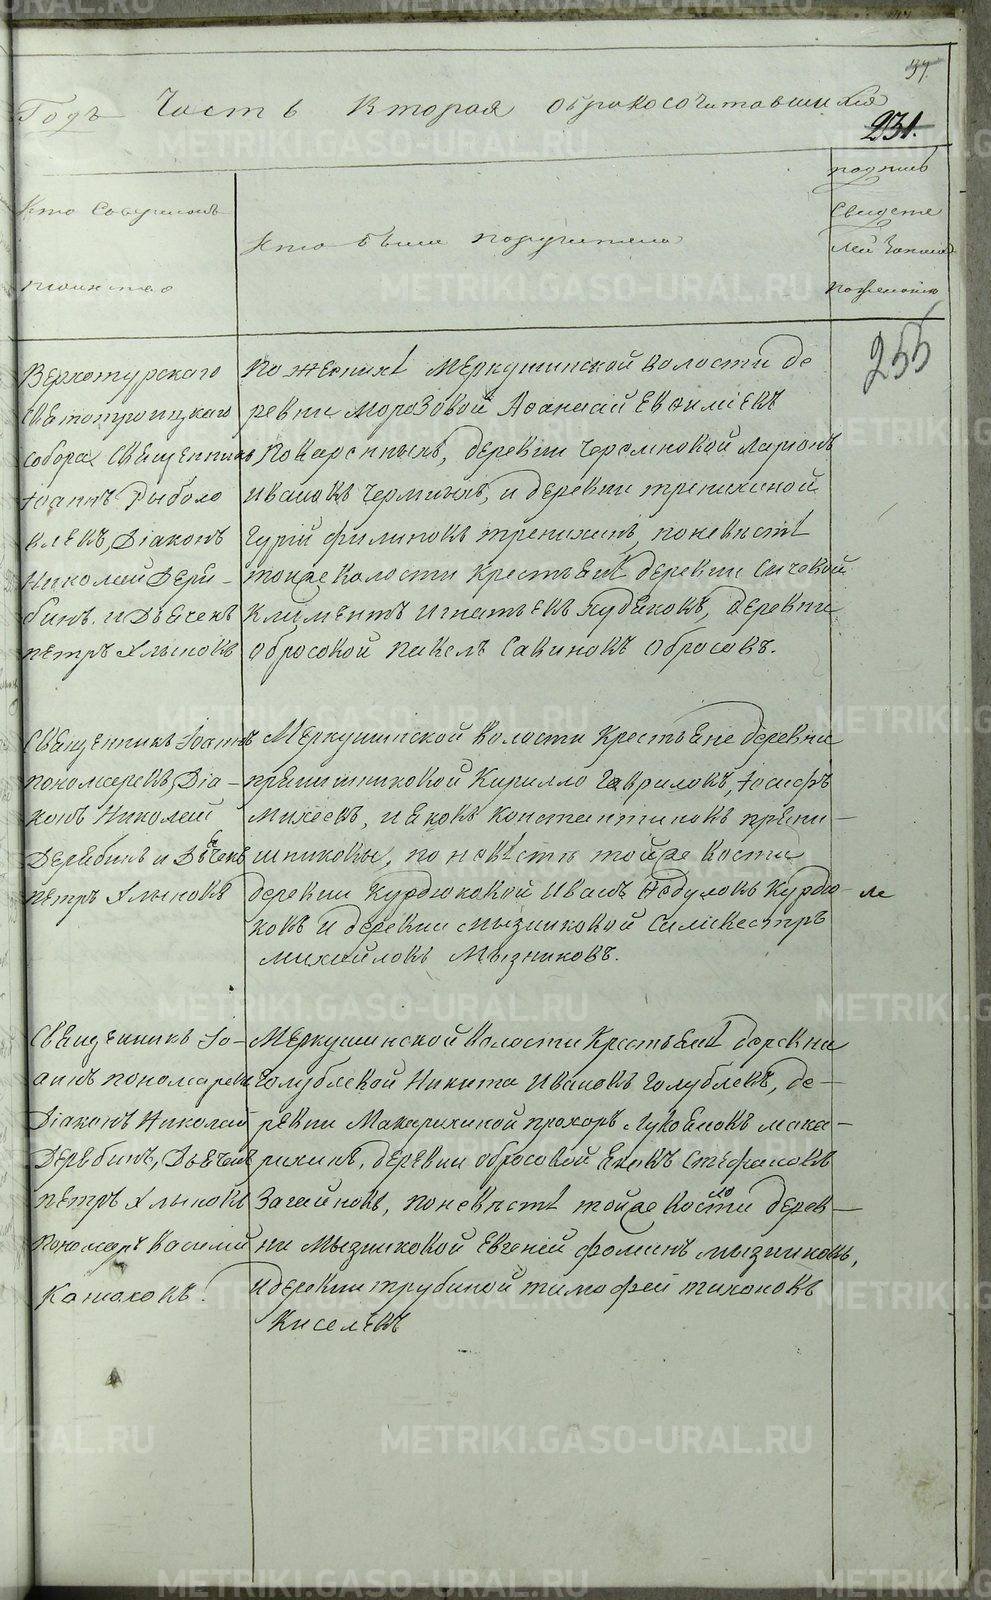 97.
Годъ Часть вторая обракосочитавшихся
231.
Кто Совершалъ
таинство
Кто были поручители
подпись
Свидете
лей Записи
пожеланію
255
Верхотурского
Святотроицкаго
собора Священникъ
Іоаннъ Рыболо
влевъ, Діаконъ
Николай Деря-
бинъ. и Дьячекъ
петръ Хлыновъ
По женихѣ Меркушинской волости де
ревни Морозовой Аѳанасій Евѳиміевъ
деревни Черемновой Ларіонъ
Ивановъ и деревни трепихиной
Гурій филиповъ трепихинъ, по невѣстѣ
тойже волости крестьянѣ деревни Сычевой
Климентъ Игнатьевъ деревни
обросовой павелъ Савиновъ обросовъ.
Священникъ Іоаннъ
пономаревъ, Діа-
конъ Николай
Дерябинъ и Дьячекъ
петръ Хлыновъ
Меркушинской волости Крестьяне деревни
прянишниковой Кирилло Гавриловъ, Іосифъ
Михеевъ, и Яковъ Константиновъ пряни-
шниковы, по невѣстѣ тойже вости
деревни Курдюковой Иванъ Ѳедуловъ Курдю-
ле
ковъ и деревни мызниковой Силивестръ
михайловъ Мызниковъ.
Священникъ Іо-
аннъ пономаревъ
Діаконъ Николай
Дерябинъ, Дьячекъ
петръ Хлыновъ
пономарь Василій
Конюховъ.
Меркушинской волости Крестьянѣ деревни
Голублевой Никита Ивановъ Голублевъ, де-
ревни Макарихиной прохоръ Лукояновъ мака-
рихинъ, деревни обросовой Яковъ Стефановъ
Загайновъ, по невѣстѣ тойже волости дерев-
ни Мызниковой Евгеній фоминъ мызниковъ,
и деревни трубиной тимофей тихоновъ
киселевъ